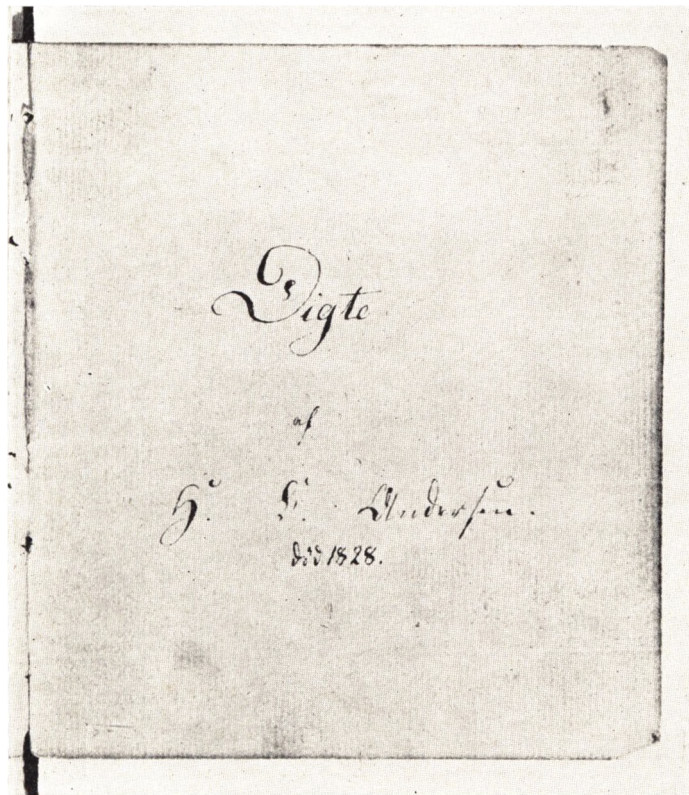 Digte
af
H. C. Andersen.
död 1828.